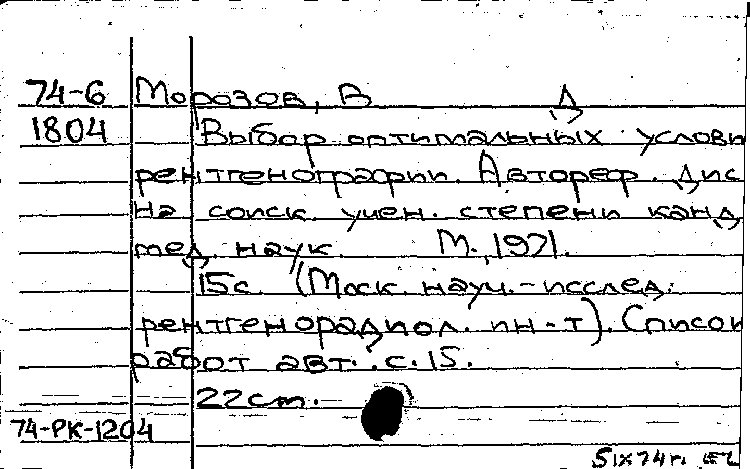 74-6 Морозов, В Д
1804 Выбор оптимальных услови
рентгенографии. Автореф. Дис
на соиск. учен. степени канд
мед. наук. М., 1971.
15с. (Моск. науч.-исслед.
рентгенорадиол. ин-т). Список
работ авт.: с. 15.
22см.
74-РК-1204
5 IX 74 г.